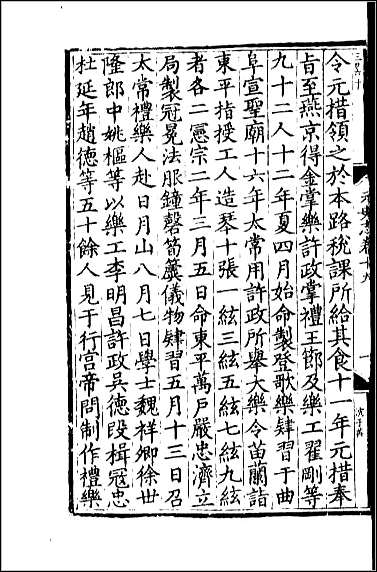 令元措領之於本路稅課所給其食十一年元措奉
旨至燕京得金掌樂許政掌禮王節及樂工翟剛等
九十二人十二年夏四月始命製登歌樂肄習于曲
阜宣聖廟十六年太常用許政所舉大樂令苗蘭詣
東平指授工人造琴十張一絃三絃五絃七絃九絃
者各二憲宗二年三月五日命東平萬戶嚴忠濟立
局製冠冕法服鐘磬筍簴儀物肄習五月十三日召
太常禮樂人赴日月山八月七日學士魏祥卿徐世
隆郎中姚樞等以樂工李明昌許政吳德段楫冦忠
杜延年趙德等五十餘人見于行宮帝問制作禮樂